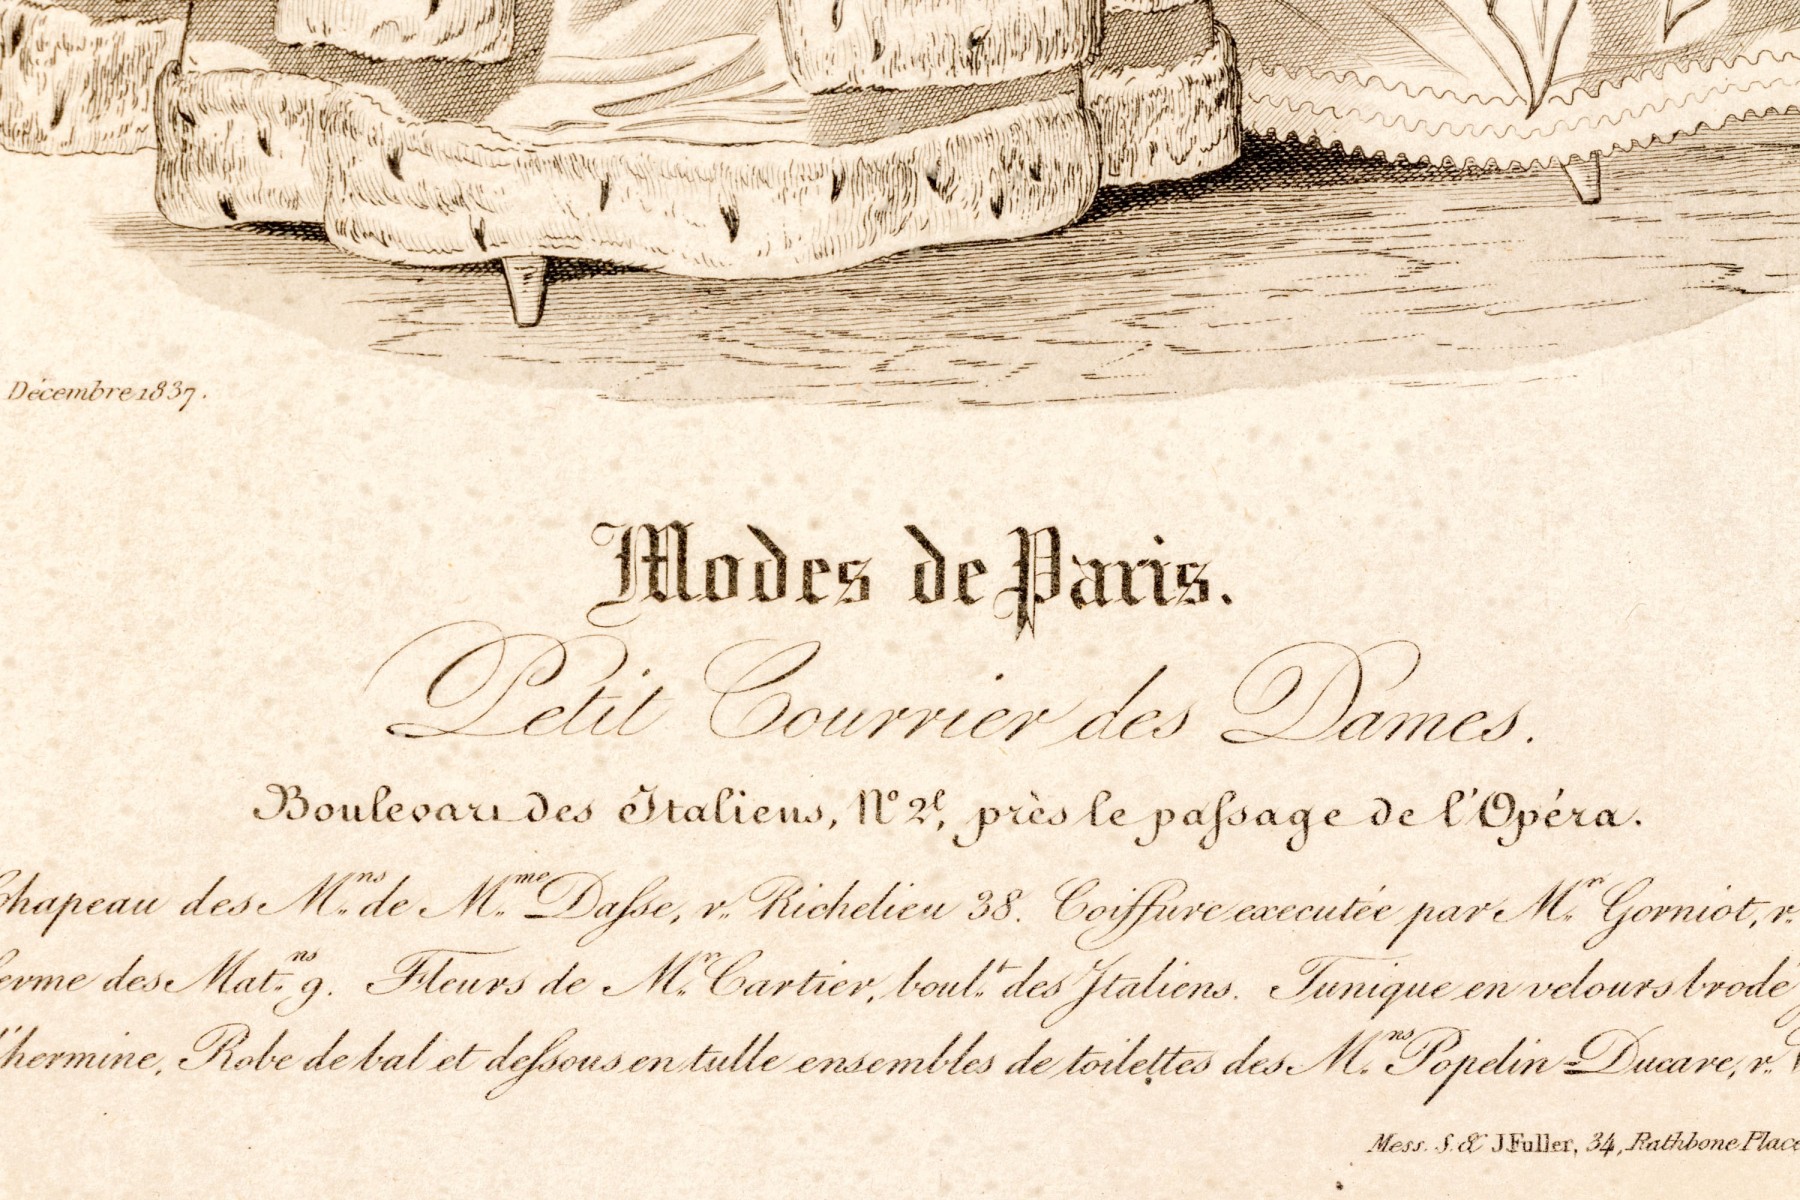 Décembre 1837.
Modes de Paris.
Petit Courrier des Dames.
Boulevart des Italiens, N° 2ᶠ, près le paſsage de l'Opéra.
Chapeau des M.ⁿˢ de M.ᵐᵉ Daſse, r. Richelieu 38. Coiffure executée par M.ʳ Gorniot, r.
ferme des Mat.ⁿˢ 9. Fleurs de M.ⁿ Cartier, boul.ᵗ des Italiens. Tunique en velours brodé
d'hermine, Robe de bal et deſsous en tulle ensembles de toilettes des M.ⁿˢ Popelin=Ducare, r.
Mess. S. & J. Fuller, 34, Rathbone Place